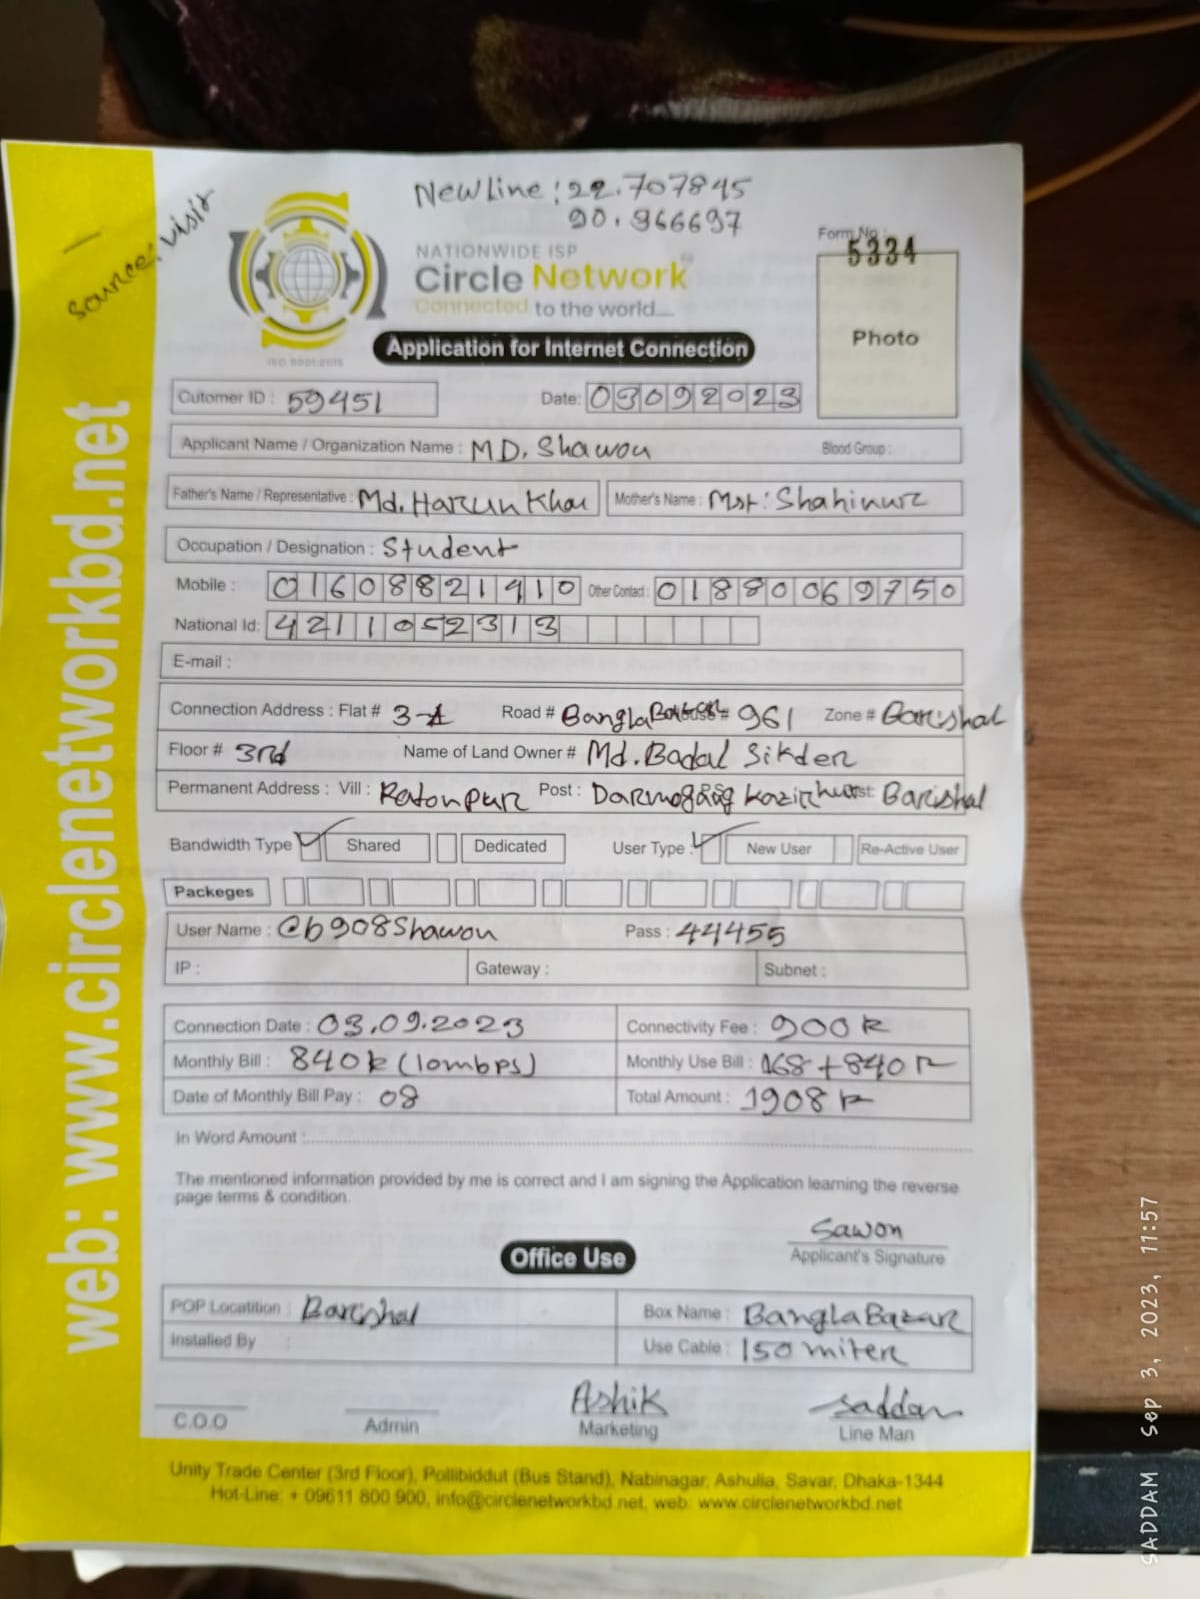 Newline: 22.707845
90.366697
Source: Visit
NATIONWIDE ISP
Circle Network
Connected to the world....
ISO 9001:2015
Form No :
5334
Photo
Application for Internet Connection
Cutomer ID : 59451 Date: 03092023
Applicant Name / Organization Name : MD. Shawon Blood Group :
Father's Name / Representative : Md. Harun Khan Mother's Name : Mst: Shahinur
Occupation / Designation : Student
Mobile : 01608821410 Other Contact : 01880069750
National Id: 4211052313
E-mail :
Connection Address : Flat # 3-A Road # Bangla Bazar House # 961 Zone # Barishal
Floor # 3rd Name of Land Owner # Md. Badal Sikder
Permanent Address : Vill : Ratonpur Post : Dist: Barishal
Bandwidth Type ✓ Shared Dedicated User Type : ✓ New User Re-Active User
Packeges
User Name : @b908Shawon Pass : 44455
IP : Gateway : Subnet :
Connection Date : 03.09.2023 Connectivity Fee : 900
Monthly Bill : 840 (10mbps) Monthly Use Bill : 168+840
Date of Monthly Bill Pay : 08 Total Amount : 1908
In Word Amount :
The mentioned information provided by me is correct and I am signing the Application learning the reverse
page terms & condition.
Sawon
Applicant's Signature
Office Use
POP Locatition : Barishal Box Name : Bangla Bazar
Installed By : Use Cable : 150 miter
Ashik Saddam
C.O.O Admin Marketing Line Man
Unity Trade Center (3rd Floor), Pollibiddut (Bus Stand), Nabinagar, Ashulia, Savar, Dhaka-1344
Hot-Line: + 09611 800 900, info@circlenetworkbd.net, web: www.circlenetworkbd.net
web: www.circlenetworkbd.net
SADDAM Sep 3, 2023, 11:57